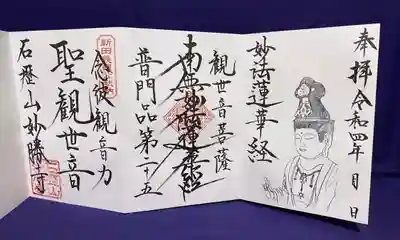 奉拝 令和四年 月 日
妙法蓮華経
観世音菩薩
南無妙法蓮華経
普門品第二十五
念彼観音力
聖観世音
石歴山妙勝寺